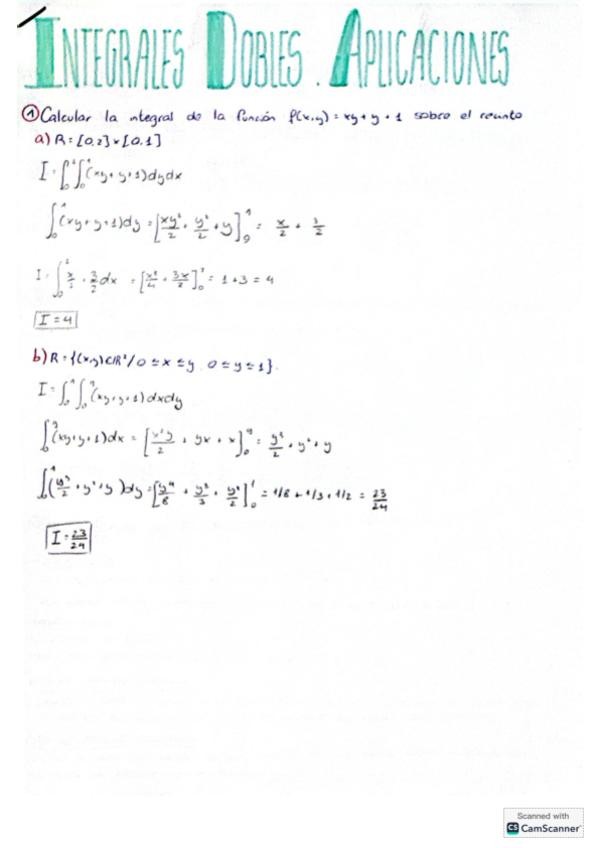 INTEGRALES DOBLES. APLICACIONES
① Calcular la integral de la función f(x,y) = xy + y + 1 sobre el recinto
a) R = [0,2] × [0,1]
I = ∫₀² ∫₀¹ (xy + y + 1) dy dx
∫₀¹ (xy + y + 1) dy = [xy²/2 + y²/2 + y]₀¹ = x/2 + 3/2
I = ∫₀² x/2 + 3/2 dx = [x²/4 + 3x/2]₀² = 1 + 3 = 4
I = 4
b) R = {(x,y) ∈ ℝ² / 0 ≤ x ≤ y, 0 ≤ y ≤ 1}.
I = ∫₀¹ ∫₀ʸ (xy + y + 1) dx dy
∫₀ʸ (xy + y + 1) dx = [x²y/2 + yx + x]₀ʸ = y³/2 + y² + y
∫₀¹ (y³/2 + y² + y) dy = [y⁴/8 + y³/3 + y²/2]₀¹ = 1/8 + 1/3 + 1/2 = 23/24
I = 23/24
Scanned with
CS CamScanner